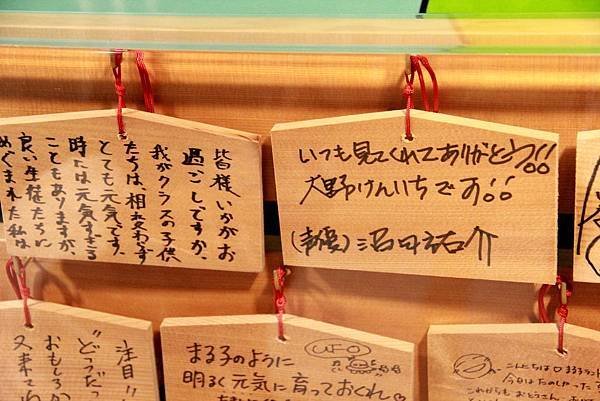 皆様いかがお
過ごしですか、
我がクラスの子供
たちは、相変わらず
とても元気です。
時には元気すぎる
こともありますが、
良い生徒たちに
めぐまれた私は
いつも見てくれてありがとう!!
大野けんいちです!!
沼田祐介
注目!!
どっだっ
おもしろか
又来て
まる子のように
UFO
明るく元気に育っておくれ♡
こんにちは♡
今日はたのしかった
これからも おとうさん